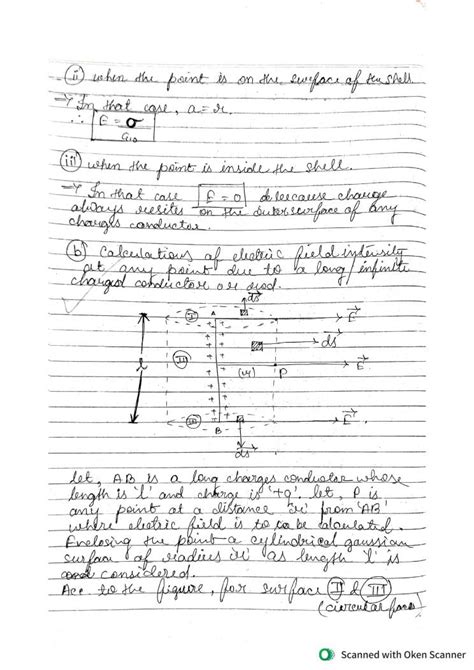 (ii) when the point is on the surface of the shell
→ In that case, a = r.
∴ E = σ/ε₀
(iii) when the point is inside the shell.
→ In that case E = 0 because charge
always resites on the outer surface of any
charges conductor.
(b) Calculations of electric field intensity
at any point due to a long/infinite
charged conductor or rod.
ds
I A E
ds
l II
(r) P E
III E
B
ds
let, AB is a long charges conductor whose
length is 'l' and charge is '+q'. let, P is
any point at a distance 'r' from 'AB'
where electric field is to be calculated.
Enclosing the point a cylindrical gaussian
surface of radius 'r' as length 'l' is
considered.
Acc to the figure, for surface II & III
(circular face)
Scanned with Oken Scanner